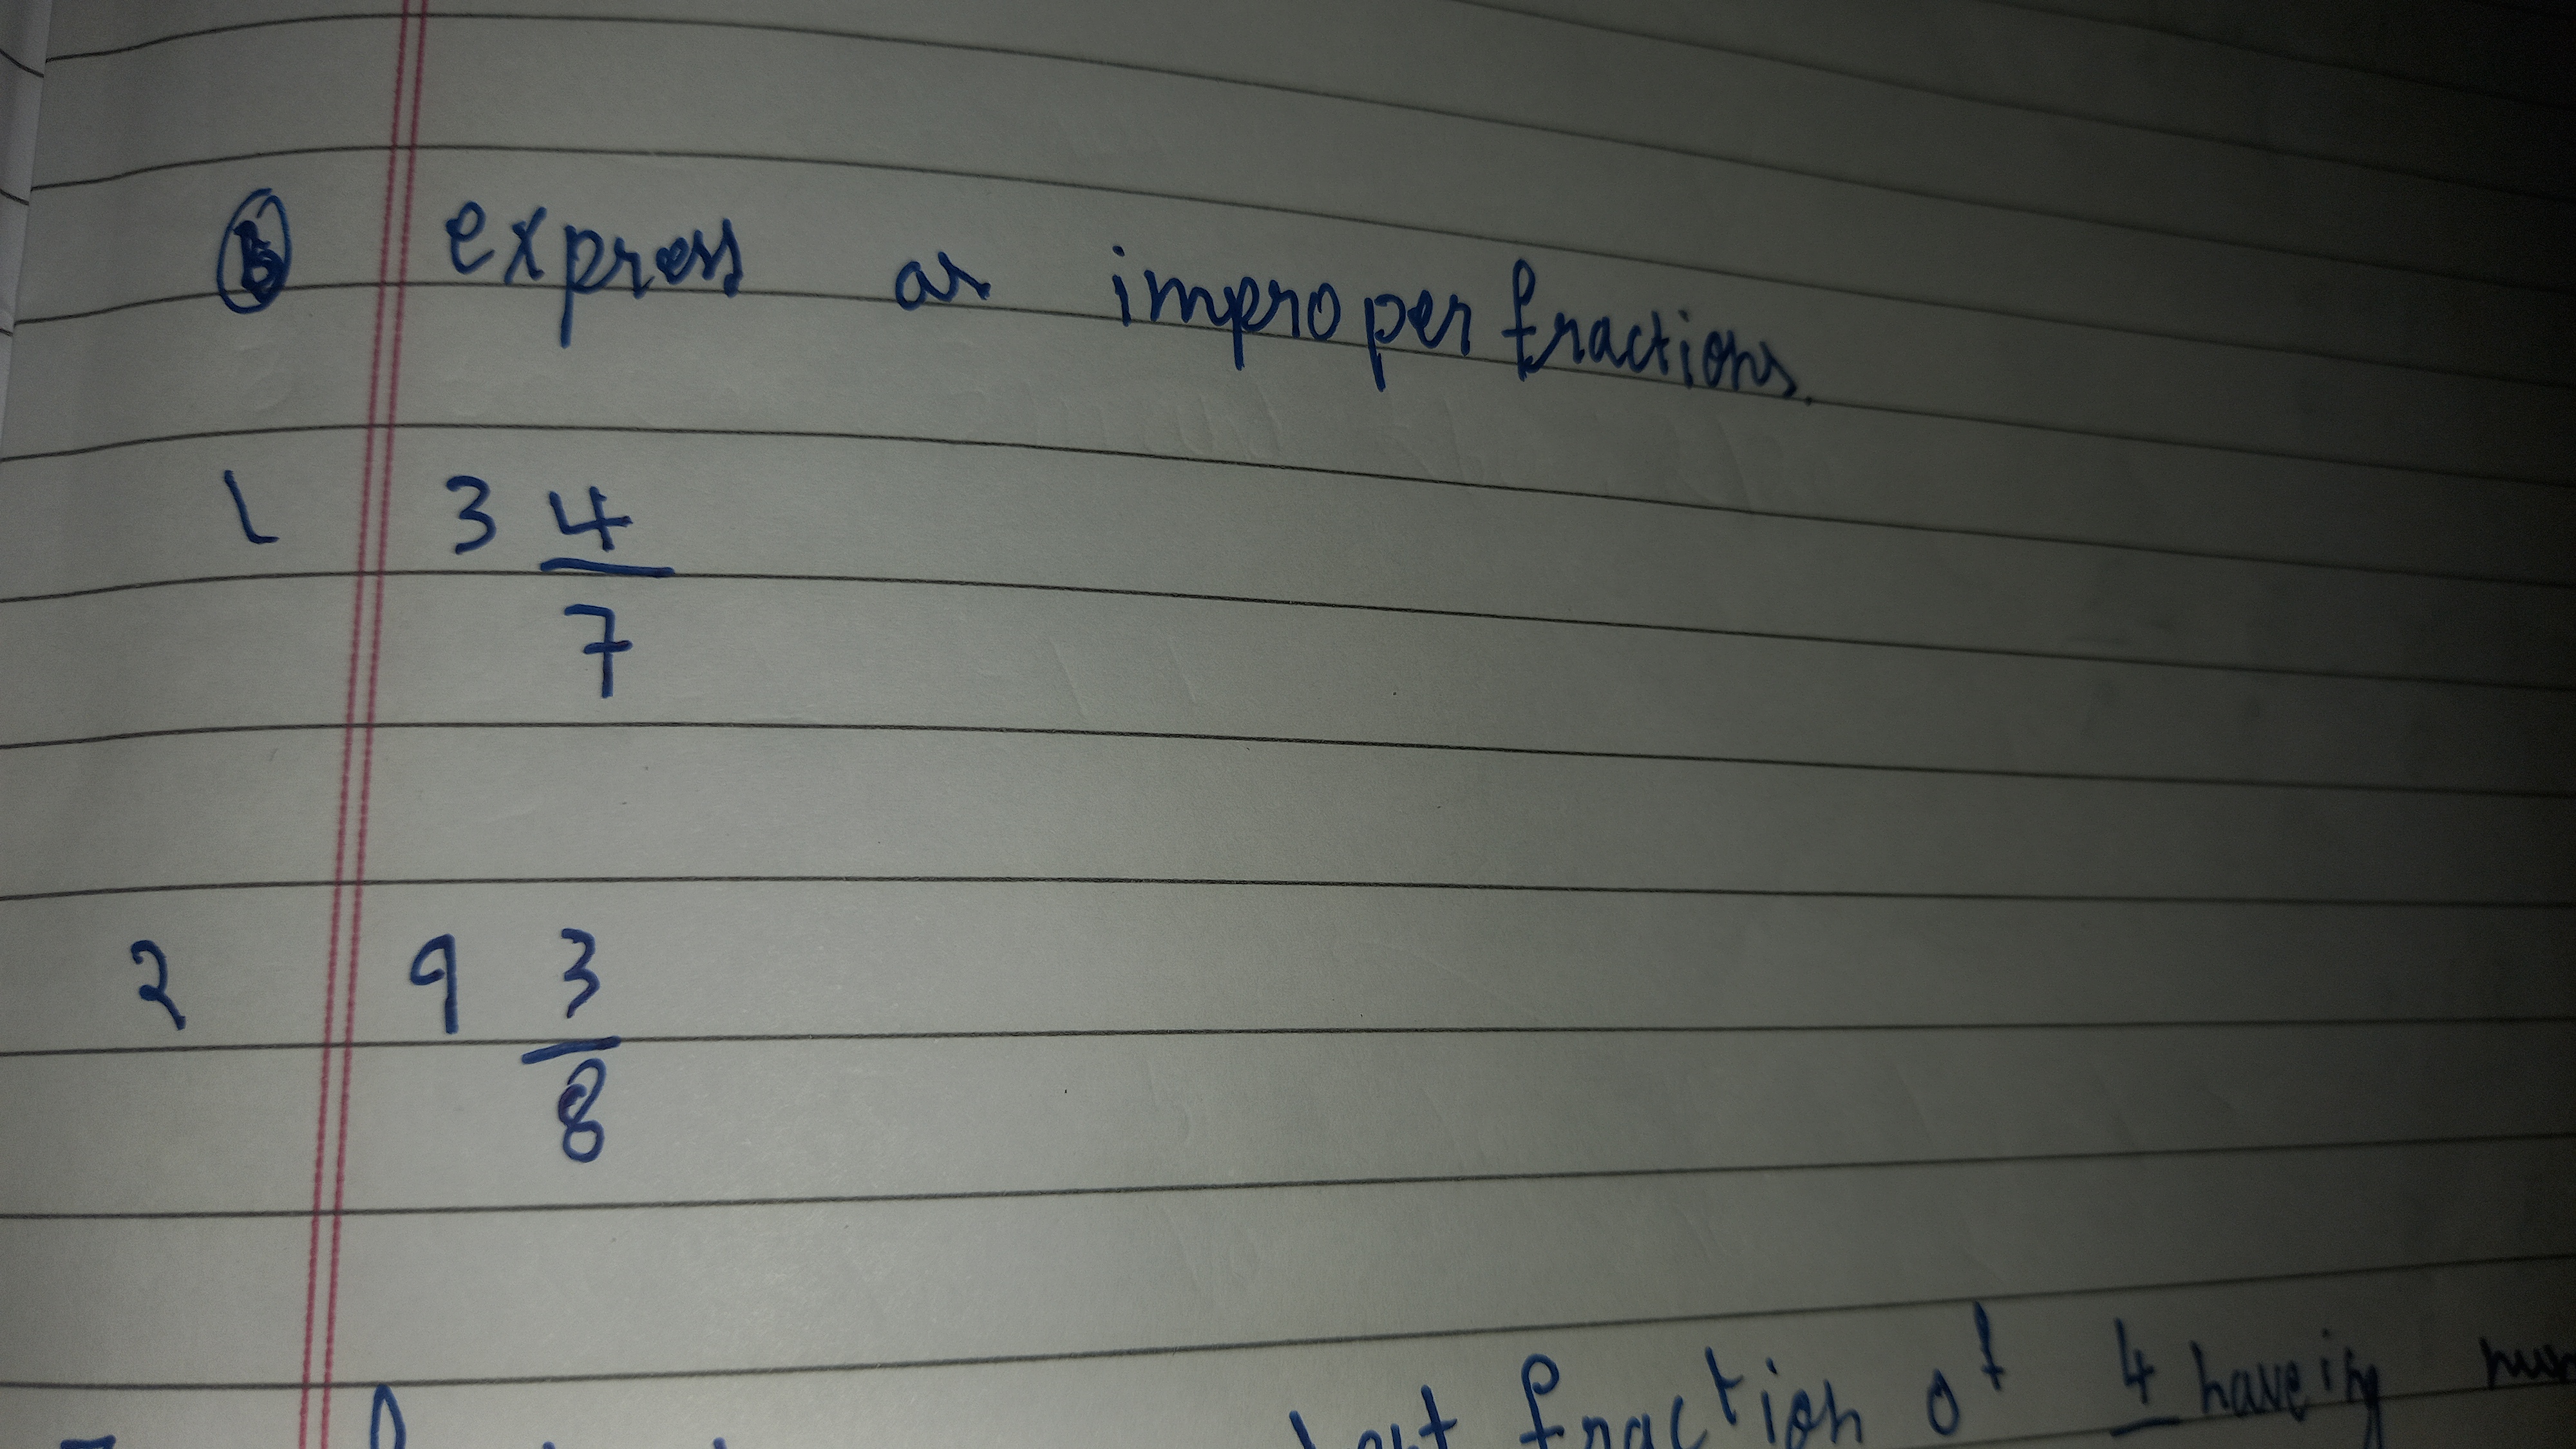 express as improper fractions.
1 3 4/7
2 9 3/8
fraction of 4 haveing